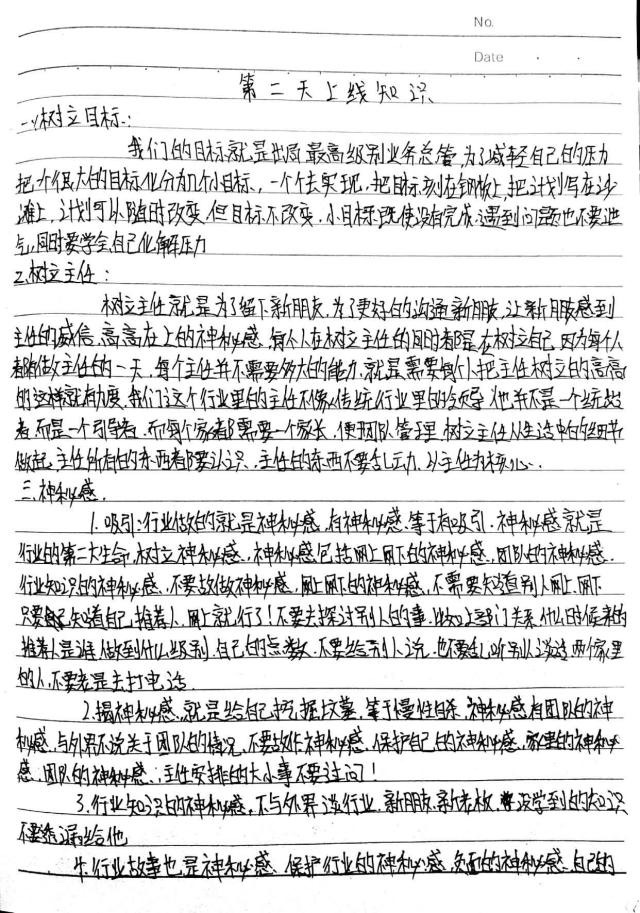 No.
Date
第二天上线知识
一、树立目标:
我们的目标就是出局最高级别业务总管,为了减轻自己的压力
把个很大的目标化分为几个小目标,一个个去实现,把目标刻在钢板上,把计划写在沙
滩上,计划可以随时改变,但目标不改变.小目标既使没有完成,遇到问题也不要泄
气,同时要学会自己化解压力
2.树立主任:
树立主任就是为了留下新朋友,为了更好的沟通新朋友,让新朋友感到
主任的威信,高高在上的神秘感,每个人在树立主任的同时都是在树立自己,因为每个人
都有做主任的一天,每个主任并不需要多大的能力,就是需要每个人把主任树立的高高
的这样就有力度,我们这个行业里的主任不像传统行业里的领导,他并不是一个统治
者,而是一个引导者,而每个家都需要一个家长,便于团队管理,树立主任从生活中的细节
做起,主任所有的东西都要认识,主任的东西不要乱动,以主任为核心.
三.神秘感.
1.吸引:行业做的就是神秘感,有神秘感等于有吸引.神秘感就是
行业的第二大生命,树立神秘感,神秘感包括网上网下的神秘感,团队的神秘感.
行业知识的神秘感,不要故做神秘感,网上网下的神秘感,不需要知道别人网上网下
只要知道自己推荐人网上就行了!不要去探讨别人的事,比如上部门关系什么时候来的
推荐人是谁做到什么级别,自己的点数不要给别人说,也不要乱听别人谈论两个家里
的人,不要老是去打电话.
2.揭神秘感,就是给自己挖掘坟墓,等于慢性自杀,神秘感有团队的神
秘感,与外界不说关于团队的情况,不要故作神秘感,保护自己的神秘感,家里的神秘
感,团队的神秘感;主任安排的大小事不要过问!
3.行业知识的神秘感,不与外界造行业,新朋友,新老板,没学到的知识
不要泄漏给他
4.行业故事也是神秘感,保护行业的神秘感,负面的神秘感,自己的